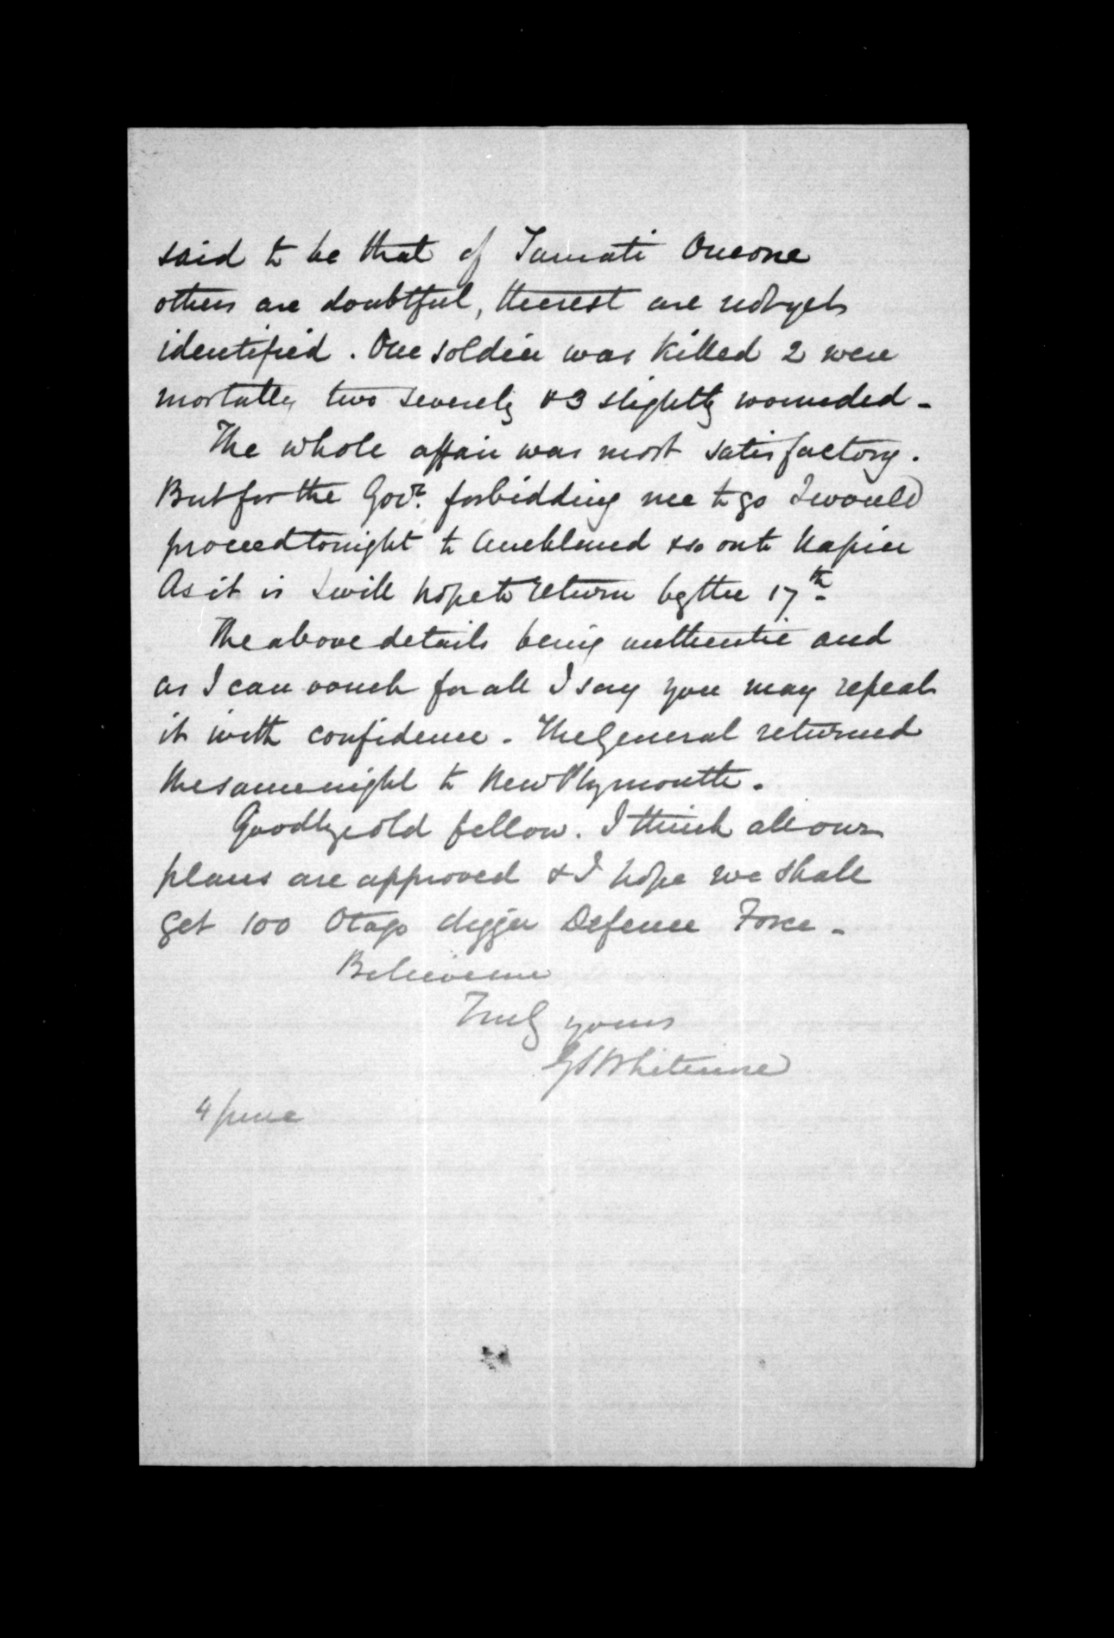 said to be that of Tamati Oneone
others are doubtful, the rest are not yet
identified. One soldier was killed 2 were
mortally two severely & 3 slightly wounded -
The whole affair was most satisfactory.
But for the Govr. forbidding me to go I would
proceed tonight to Auckland & so on to Napier
As it is I will hope to return by the 17th.
The above details being authentic and
as I can vouch for all I say you may repeat
it with confidence. The General returned
the same night to New Plymouth.
Goodbye old fellow. I think all our
plans are approved & I hope we shall
get 100 Otago digger Defence Force -
Believe me
Truly yours
GS Whitmore
4 June